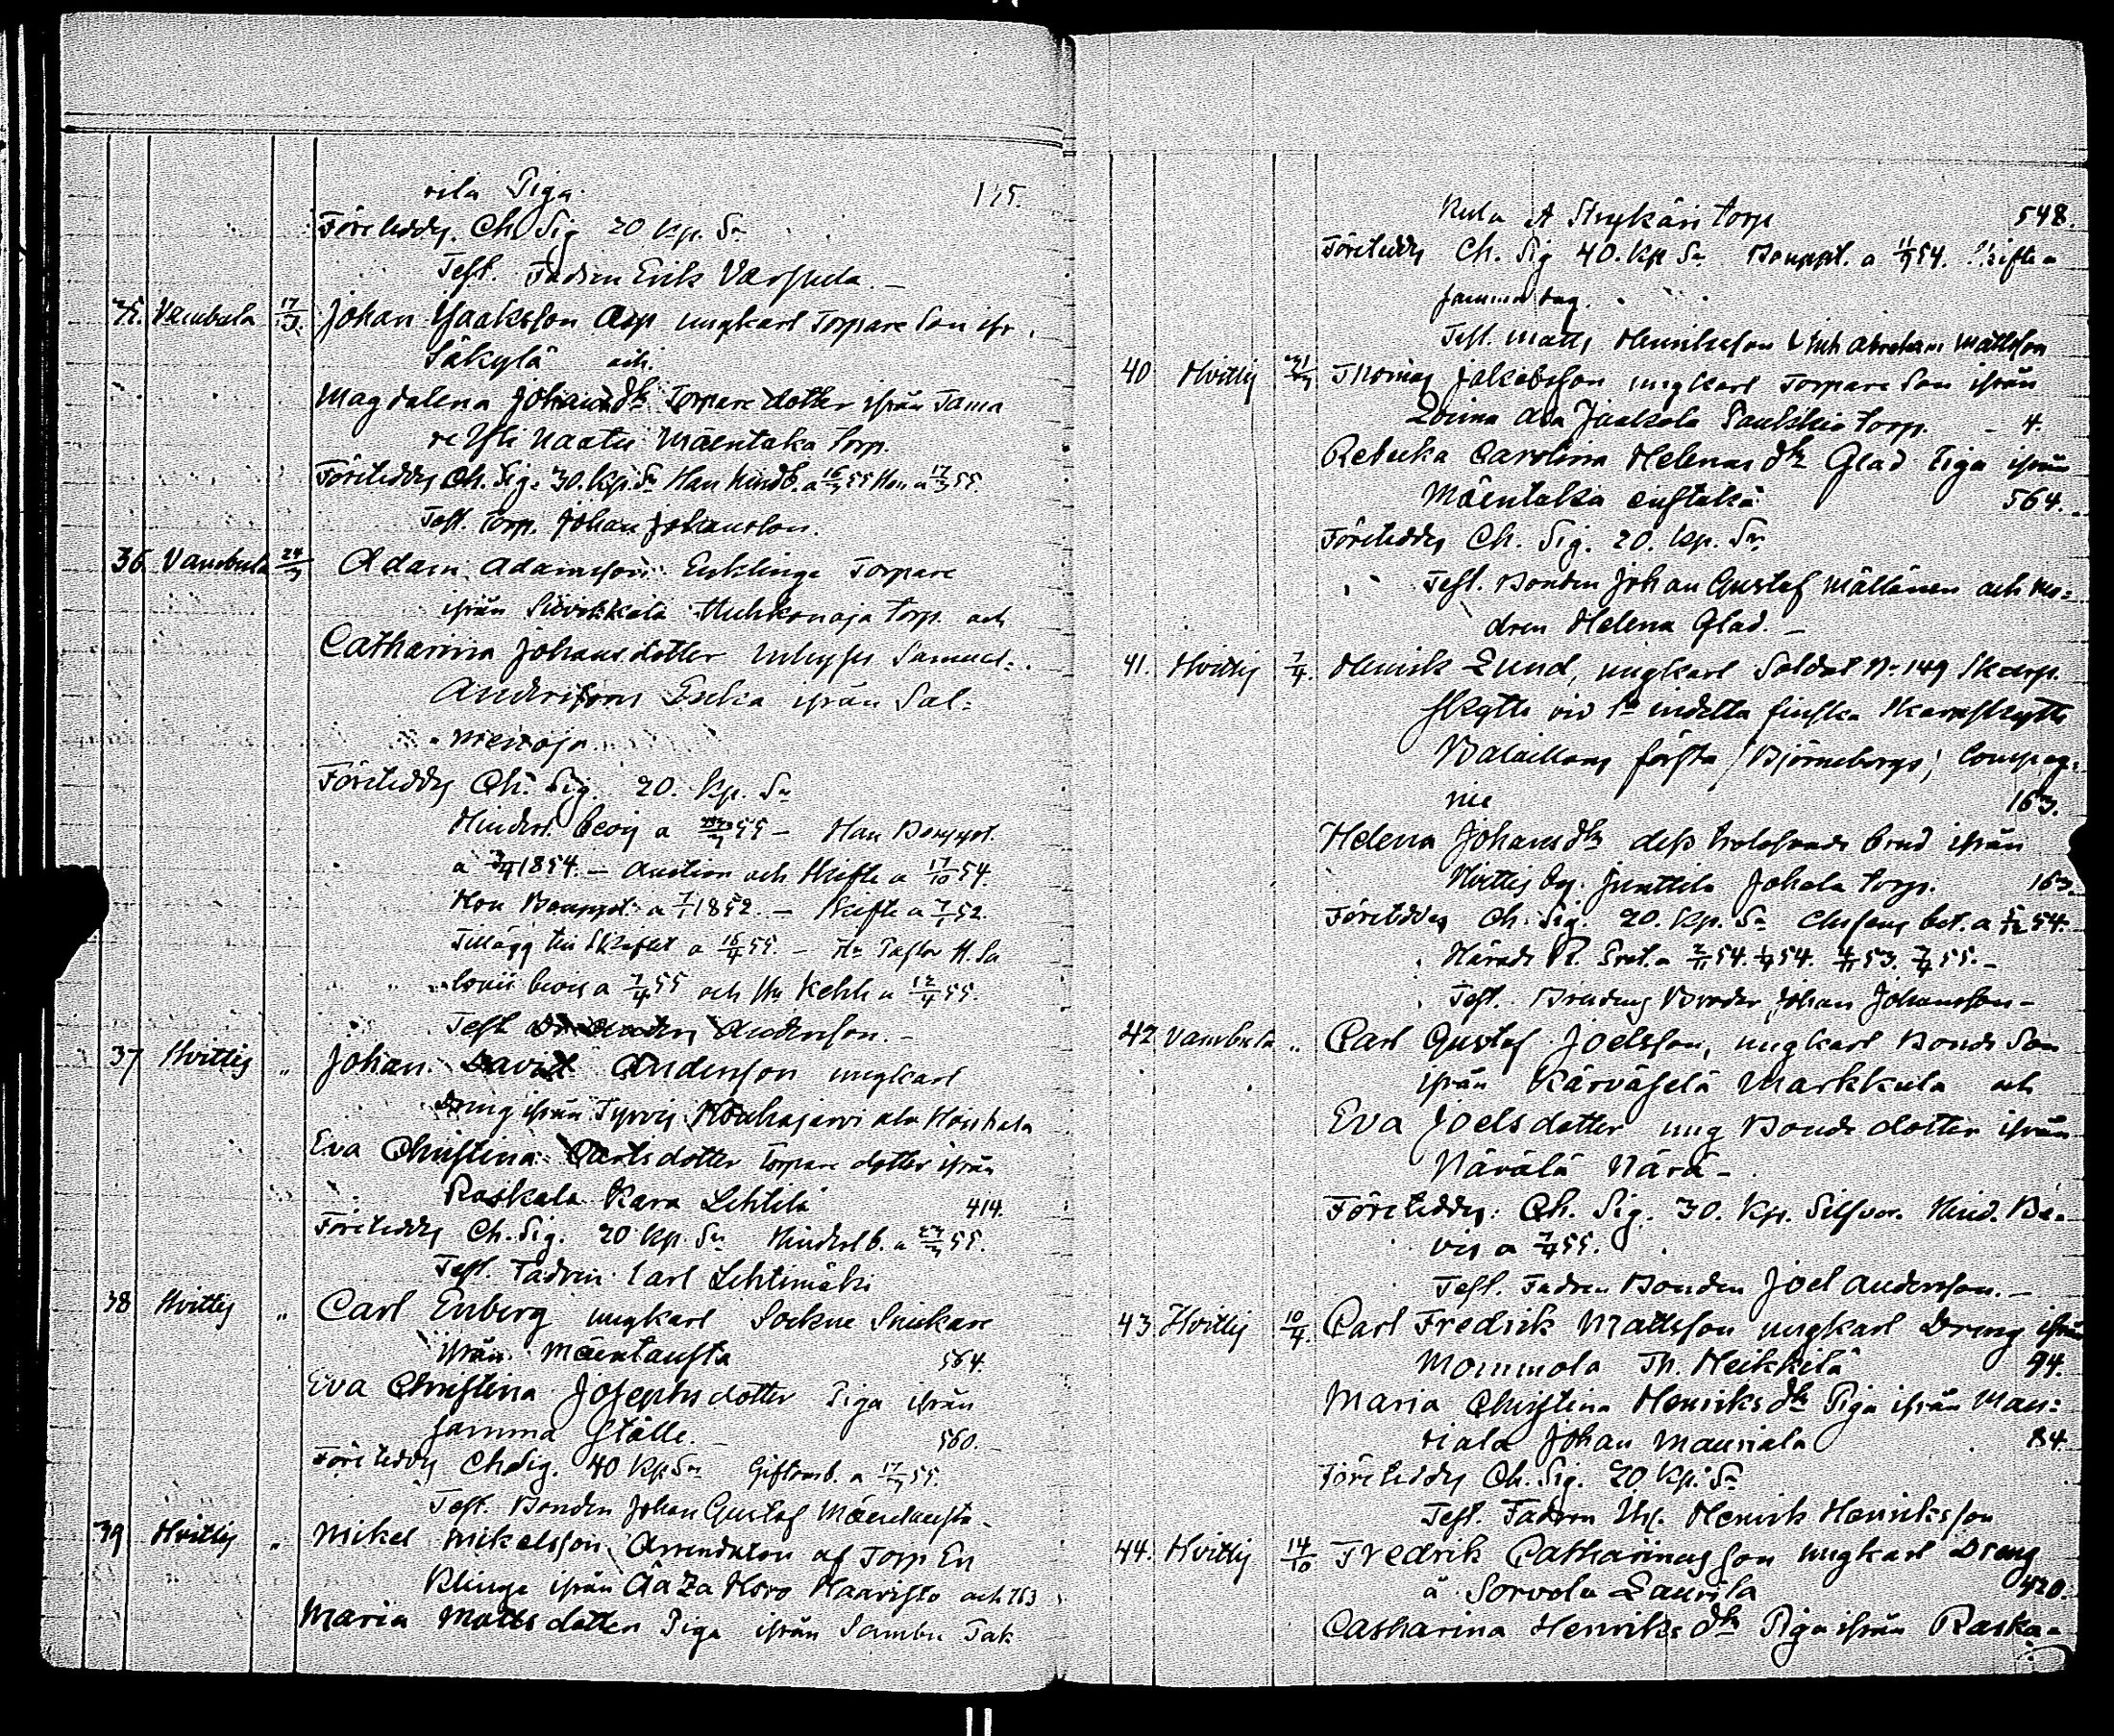 rila Piga. 115.
Företeddes Ch. Sig 20 Kp. Sr
Test. Fadren Erik Varpula. —
35. Vambula 17/3. Johan Jaaksson Asp ungkarl Torpare Son ifr.
Säkylä och
Magdalena Johansdtr Torpare dotter ifrån Tama
re Yli Naatu Mäentaka Torp.
Företeddes Ch. Sig. 30. Kp. Sr Han hindb. a 16/3 55 Hon a 17/3 55.
Test. Torp. Johan Johansson.
36 Vambula 24/3 Adam Adamsson Enklinge Torpare
ifrån Sievikkälä Huhkonoja Torp. och
Catharina Johansdotter Inhyses Samuel
Anderssons Enka ifrån Sal=
menoja
Företeddes Ch. Sig. 20. Kp. Sr
Hinderl. bevis a 55 — Han Bouppt.
a 1854. — Auction och Skifte a 17/10 54.
Hon Bouppt. a 7/1 1852. — Skifte a 7/1 52.
Tillägg till Skiftet a 16/4 55. — Hr Pastor H. Sa
lovii bevis a 7/4 55 och Hr Kehh a 12/4 55.
Test. Andersson. —
37 Hvittis „ Johan David Andersson ungkarl
Dreng ifrån Tyrvis Houhajarvi ala Houhala
Eva Christina Carlsdotter Torpare dotter ifrån
Raskala Kara Lehtilä 414.
Företeddes Ch. Sig. 20 Kp. Sr Hinderl b. a 23/3 55.
Test. Fadren Carl Lehtimäki
38 Hvittis „ Carl Enberg ungkarl Sockne Snickare
ifrån Mäentausta 584.
Eva Christina Josephsdotter Piga ifrån
samma ställe. — 580.
Företeddes Ch. Sig. 40 Kp Sr Giftomb. a 17/3 55.
Test. Bonden Johan Gustaf Mäentausta —
39 Hvittis „ Mikel Mikelsson Arrendator af Torp En
Klinge ifrån Haaristo och 163
Maria Mattsdotter Piga ifrån Sambu Tak
kula A Strykäri torp 548.
Företeddes Ch. Sig 40. Kp Sr Bouppt. a 11/9 54. Skifte a
samma dag.
Test. Matts Henriksson Abraham Mattsson
40 Hvittis 31/3 Thomas Jakobsson ungkarl Torpare Son ifrån
Loima Ala Jaakola Paukkio torp. — 4.
Rebecka Carolina Helenas dtr Glad Piga ifrån
Mäentaka enstaka 564.
Företeddes Ch. Sig. 20. Kp. Sr
Test. Bonden Johan Gustaf Mältänen och mo=
dren Helena Glad. —
41. Hvittis 7/4. Henrik Lund, ungkarl Soldat No. 149 Skarp.
skytte vid 1a indelta finska Skarpskytte
Bataillons första (Björneborgs) Compag=
nie 163.
Helena Johansdtr dess trolofvade brud ifrån
Hvittis by. Junttila Jokela torp. 163.
Företeddes Ch. Sig. 20. Kp. Sr Chefens bet. a 54.
Härads R. Prot. a 54. 54. 53. 7/4 55. —
Test. Brudens Broder Johan Johansson —
42 Vambula „ Carl Gustaf Joelsson, ungkarl Bonde Son
ifrån Kärväselä Markkula och
Eva Joelsdotter ung Bonde dotter ifrån
Närälä Närä —
Företeddes Ch. Sig. 30. Kp. Silfver. Hind. Be=
vis a 7/4 55.
Test. Fadren Bonden Joel Andersson. —
43. Hvittis 10/4. Carl Fredrik Mattsson ungkarl Dreng ifrån
Mommola Th. Heikkilä 94.
Maria Christina Henriksdtr Piga ifrån Mau=
riala Johan Mauriala 84.
Företeddes Ch. Sig. 20 Kp. Sr
Test. Fadren Inh. Henrik Henriksson
44. Hvittis 14/10 Fredrik Catharinasson ungkarl Dreng
å Sorvola Laurila 420.
Catharina Henriksdtr Piga ifrån Raska=